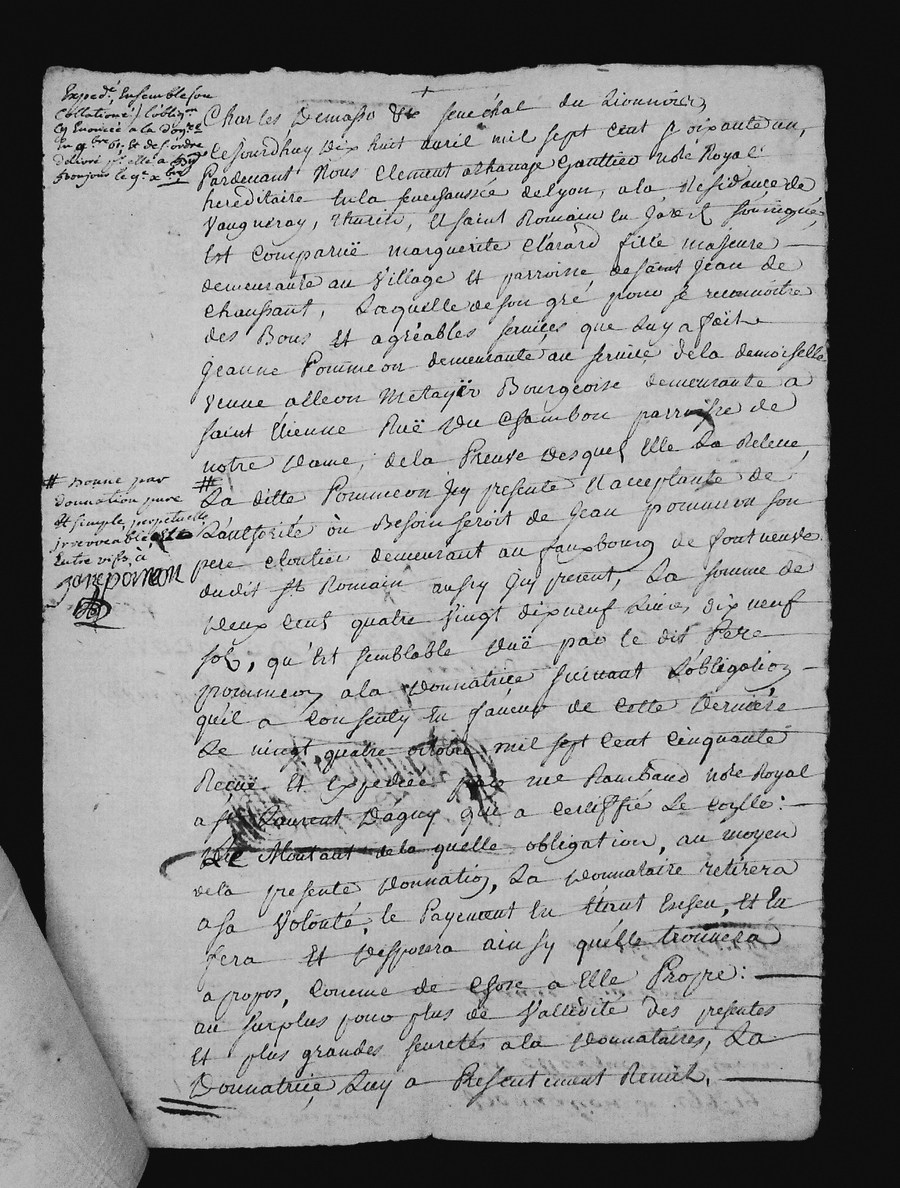 Exped.é Ensemble son
Collationé / l'oblig.on
Cy Enoncée a la don.re
donjour le 9.e x.bre
Charles Demasso &c senéchal du Lionnois,
Cejourdhuy Dix huit avril mil sept cent soixante un,
Pardevant Nous Clement athanaze Gaultier no.re Royal
hereditaire En la senechaussée de Lyon, a la Residance de
Vaugneray, Thurin, Et saint Romain En Jarest soussigné,
Est Comparuë marguerite Clarard fille majeure
demeurante au Village Et parroisse de saint Jean de
Chaussant, Laquelle de son gré pour se reconnoitre
des Bons Et agréables services que Luy a fait
Jeanne Pommeon demeurante au service de la demoiselle
Veuve alleon Metayër Bourgeoise demeurante a
saint Etienne Ruë du Chambon parroisse de
notre Dame, de la Preuve desquels Elle La Releve,
# Donne par
donnation pure
Et simple, perpetuelle
jrrevocable,
Entre vifs, à
Jan pomeon
#
La ditte Pommeon Jcy presente Et acceptante de
L'authorité où Besoin seroit de Jean pommeon son
pere Cloutier demeurant au fauxbourg de fontneuve
dudit St Romain aussy Jcy present, La somme de
Deux Cent quatre Vingt dix neuf Livres dix neuf
sols, qu'Est semblable Duë par le dit Pere
pommeon a la Donnatrice suivant L'obligation
qu'il a Consenty En faveur de Cette Derniere
Le vingt quatre octobre mil sept cent cinquante
Reçuë Et Expediée par me Rambaud no.re Royal
a St Laurent Dagny qui a certiffié Le Coylle:
Le Montant de la quelle obligation, au moyen
de la presente Donnation, La Donnataire retirera
a sa Volonté, le Payement En Etant Echeu, Et En
fera Et Disposera ainsy qu'elle trouvera
apropos, Comme de Chose a Elle Propre:
au surplus pour plus de Vallidité des presentes
Et plus grandes seuretés a la Donnataires, La
Donnatrice Luy a Presentement Remis,